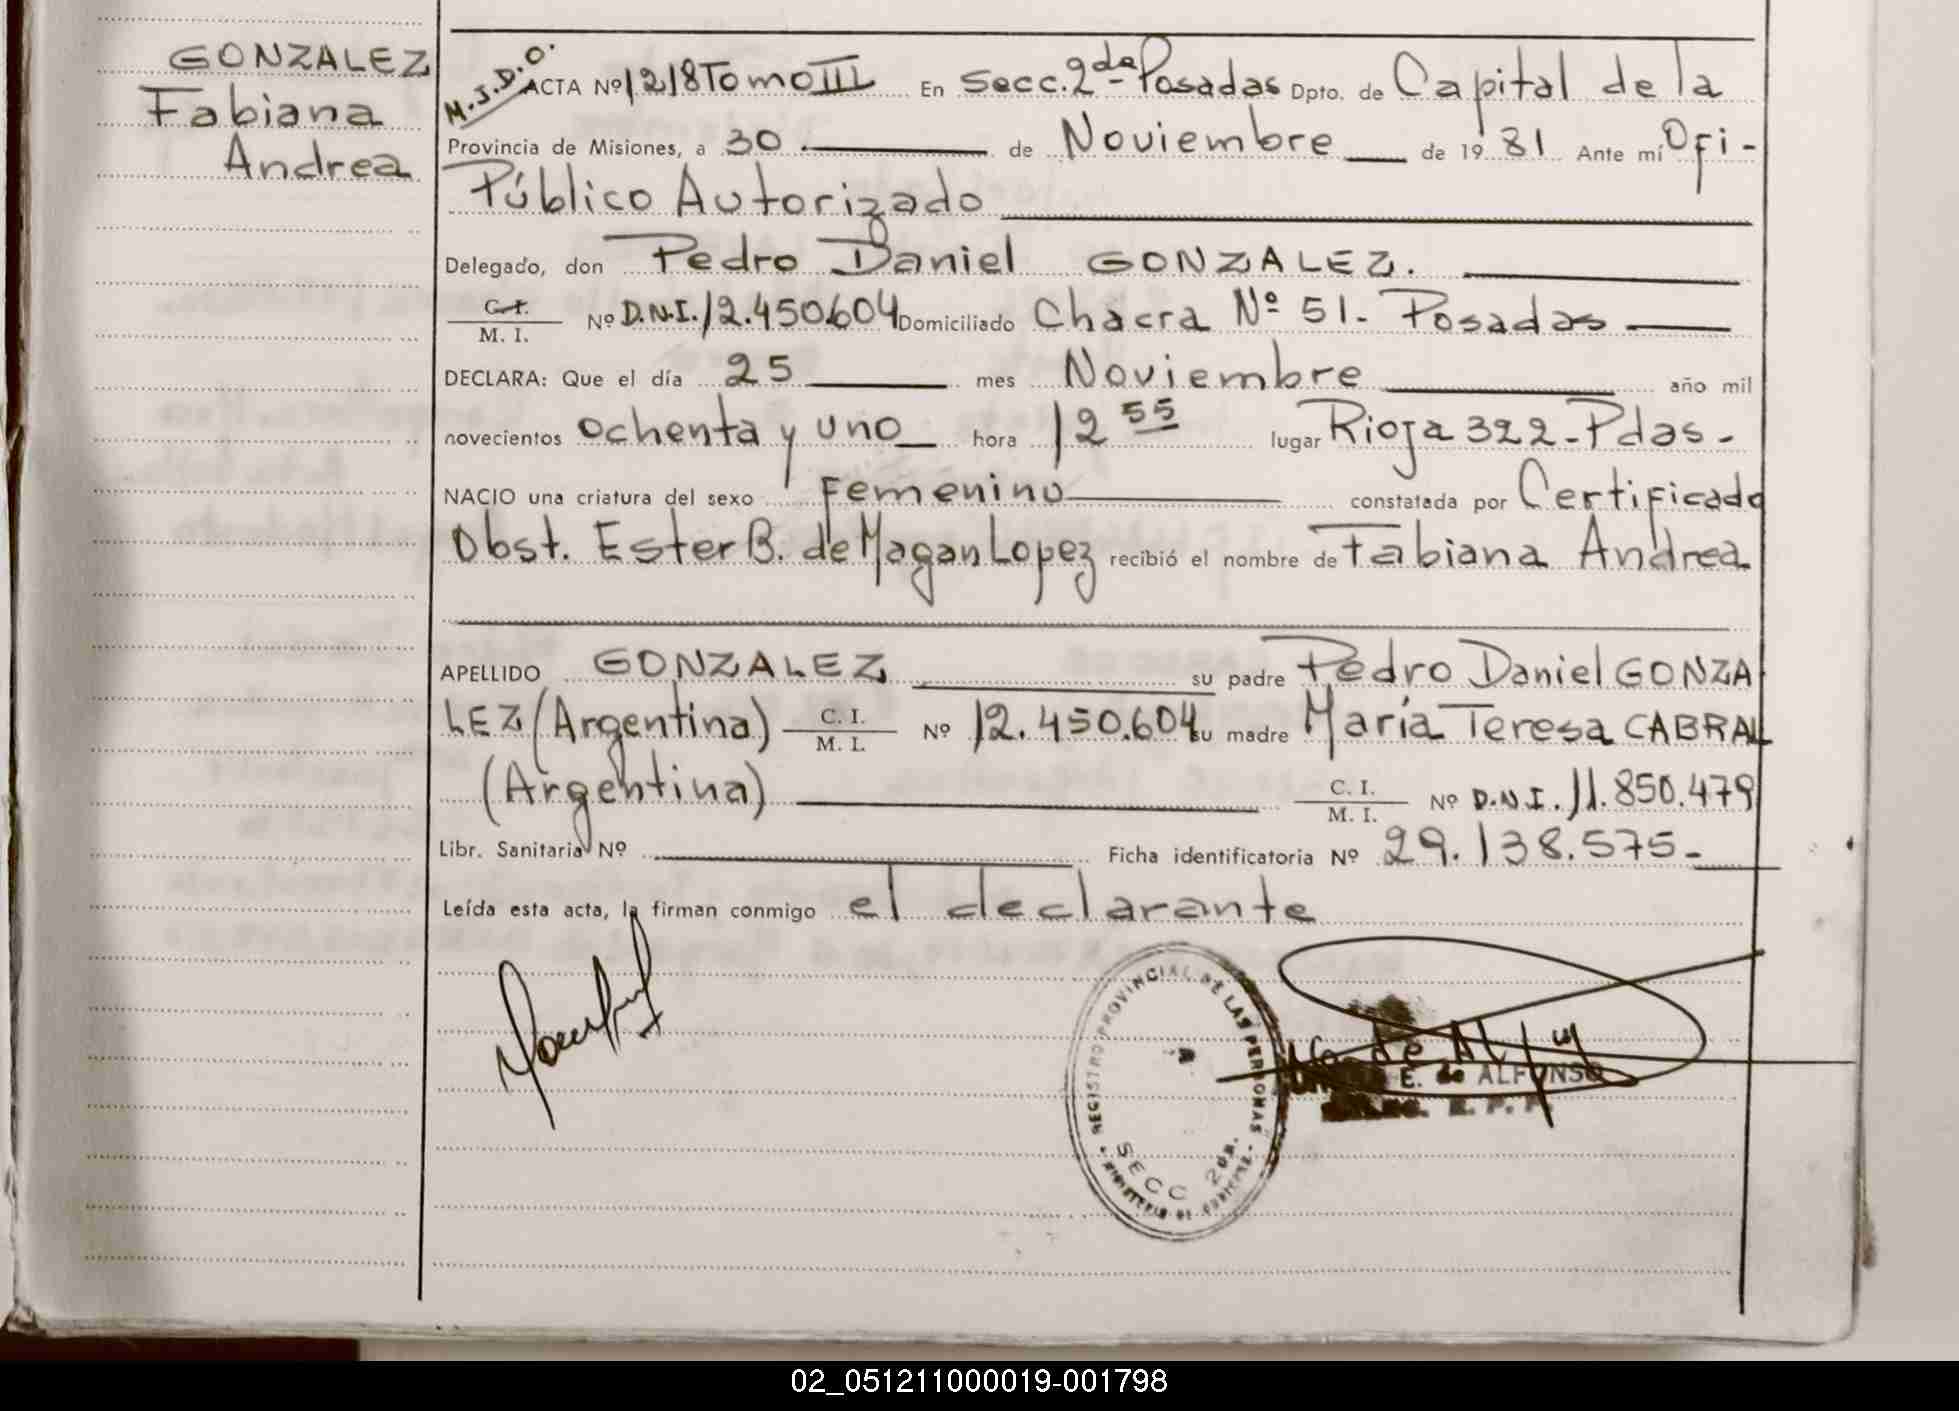 GONZALEZ
Fabiana
Andrea
M.J.D.O.
ACTA Nº 1218 Tomo III En Secc. 2da - Posadas Dpto. de Capital de la
Provincia de Misiones, a 30 de Noviembre de 1981 Ante mí Ofi-
Público Autorizado
Delegado, don Pedro Daniel GONZALEZ.
C.I. / M. I. Nº D.N.I. 12.450.604 Domiciliado Chacra Nº 51 - Posadas
DECLARA: Que el día 25 mes Noviembre año mil
novecientos ochenta y uno hora 12 55 lugar Rioja 322 - Pdas -
NACIO una criatura del sexo Femenino constatada por Certificado
Obst. Ester B. de Magan Lopez recibió el nombre de Fabiana Andrea
APELLIDO GONZALEZ su padre Pedro Daniel GONZA
LEZ (Argentina) C. I. / M. I. Nº 12.450.604 su madre María Teresa CABRAL
(Argentina) C. I. / M. I. Nº D.N.I. 11.850.479
Libr. Sanitaria Nº Ficha identificatoria Nº 29.138.575 -
Leída esta acta, la firman conmigo el declarante
REGISTRO PROVINCIAL DE LAS PERSONAS
SECC 2da.
E. de ALFONSO
02_051211000019-001798